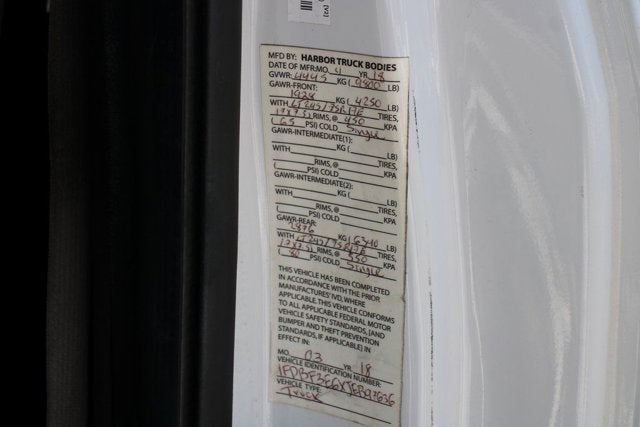 MFD BY: HARBOR TRUCK BODIES
DATE OF MFR:MO. 4 YR. 18
GVWR: 4445 KG ( 9800 LB)
GAWR-FRONT:
1928 KG ( 4250 LB)
WITH LT245/75R17E TIRES,
17X7.5J RIMS, @ 450 KPA
( 65 PSI) COLD Single
GAWR-INTERMEDIATE(1):
KG ( LB)
WITH TIRES,
RIMS, @ KPA
( PSI) COLD
GAWR-INTERMEDIATE(2):
KG ( LB)
WITH TIRES,
RIMS, @ KPA
( PSI) COLD
GAWR-REAR:
2876 KG ( 6340 LB)
WITH LT245/75R17E TIRES,
17X7.5J RIMS, @ 550 KPA
( 80 PSI) COLD Single
THIS VEHICLE HAS BEEN COMPLETED
IN ACCORDANCE WITH THE PRIOR
MANUFACTURES' IVD, WHERE
APPLICABLE. THIS VEHICLE CONFORMS
TO ALL APPLICABLE FEDERAL MOTOR
VEHICLE SAFETY STANDARDS, [AND
BUMPER AND THEFT PREVENTION
STANDARDS, IF APPLICABLE] IN
EFFECT IN:
MO. 03 YR. 18
VEHICLE IDENTIFICATION NUMBER:
1FDBF2E6XJEB97636
VEHICLE TYPE:
Truck